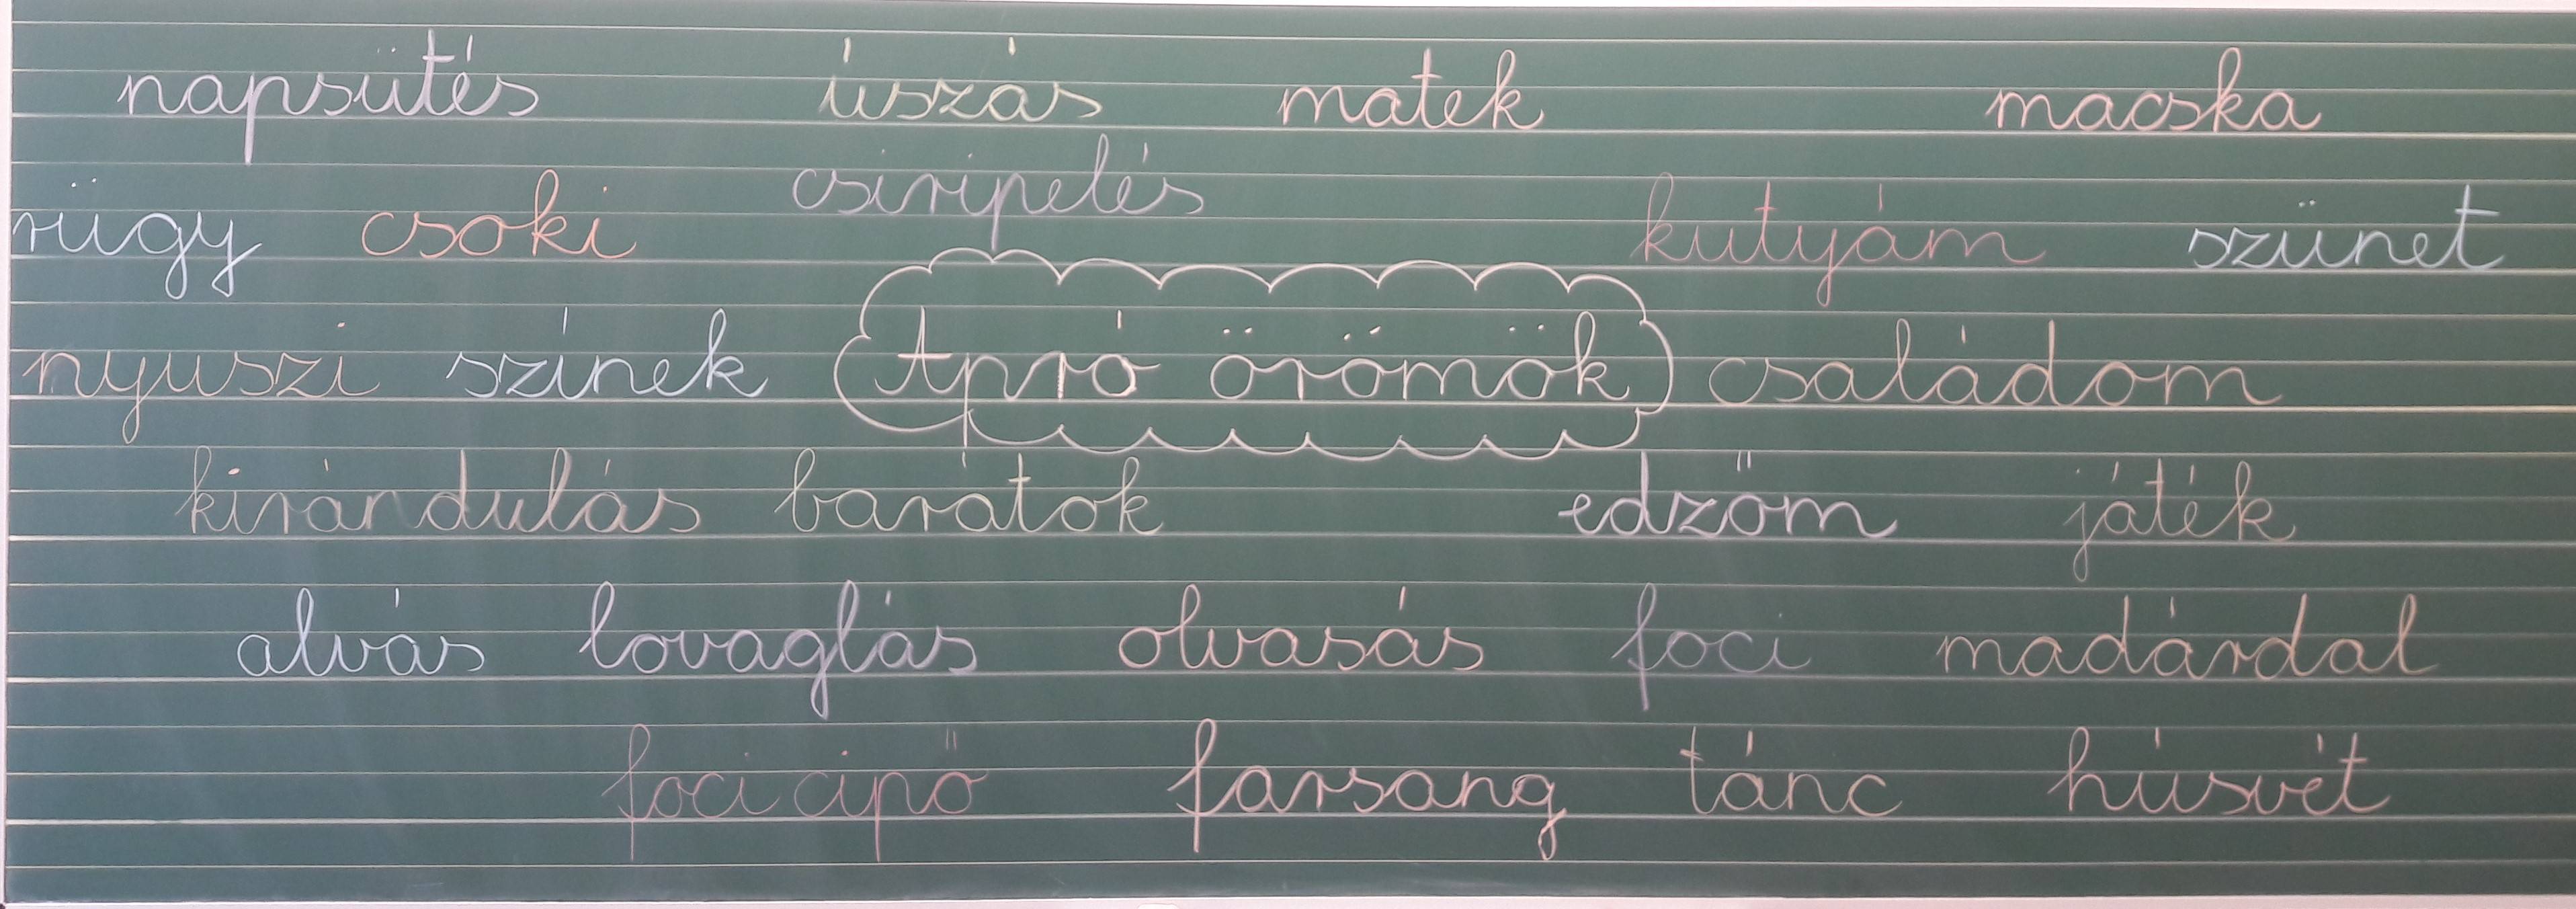 napsütés úszás matek macska
csiripelés
rügy csoki kutyám szünet
nyuszi színek Apró örömök családom
kirándulás barátok edzőm játék
alvás lovaglás olvasás foci madárdal
foci cipő farsang tánc húsvét